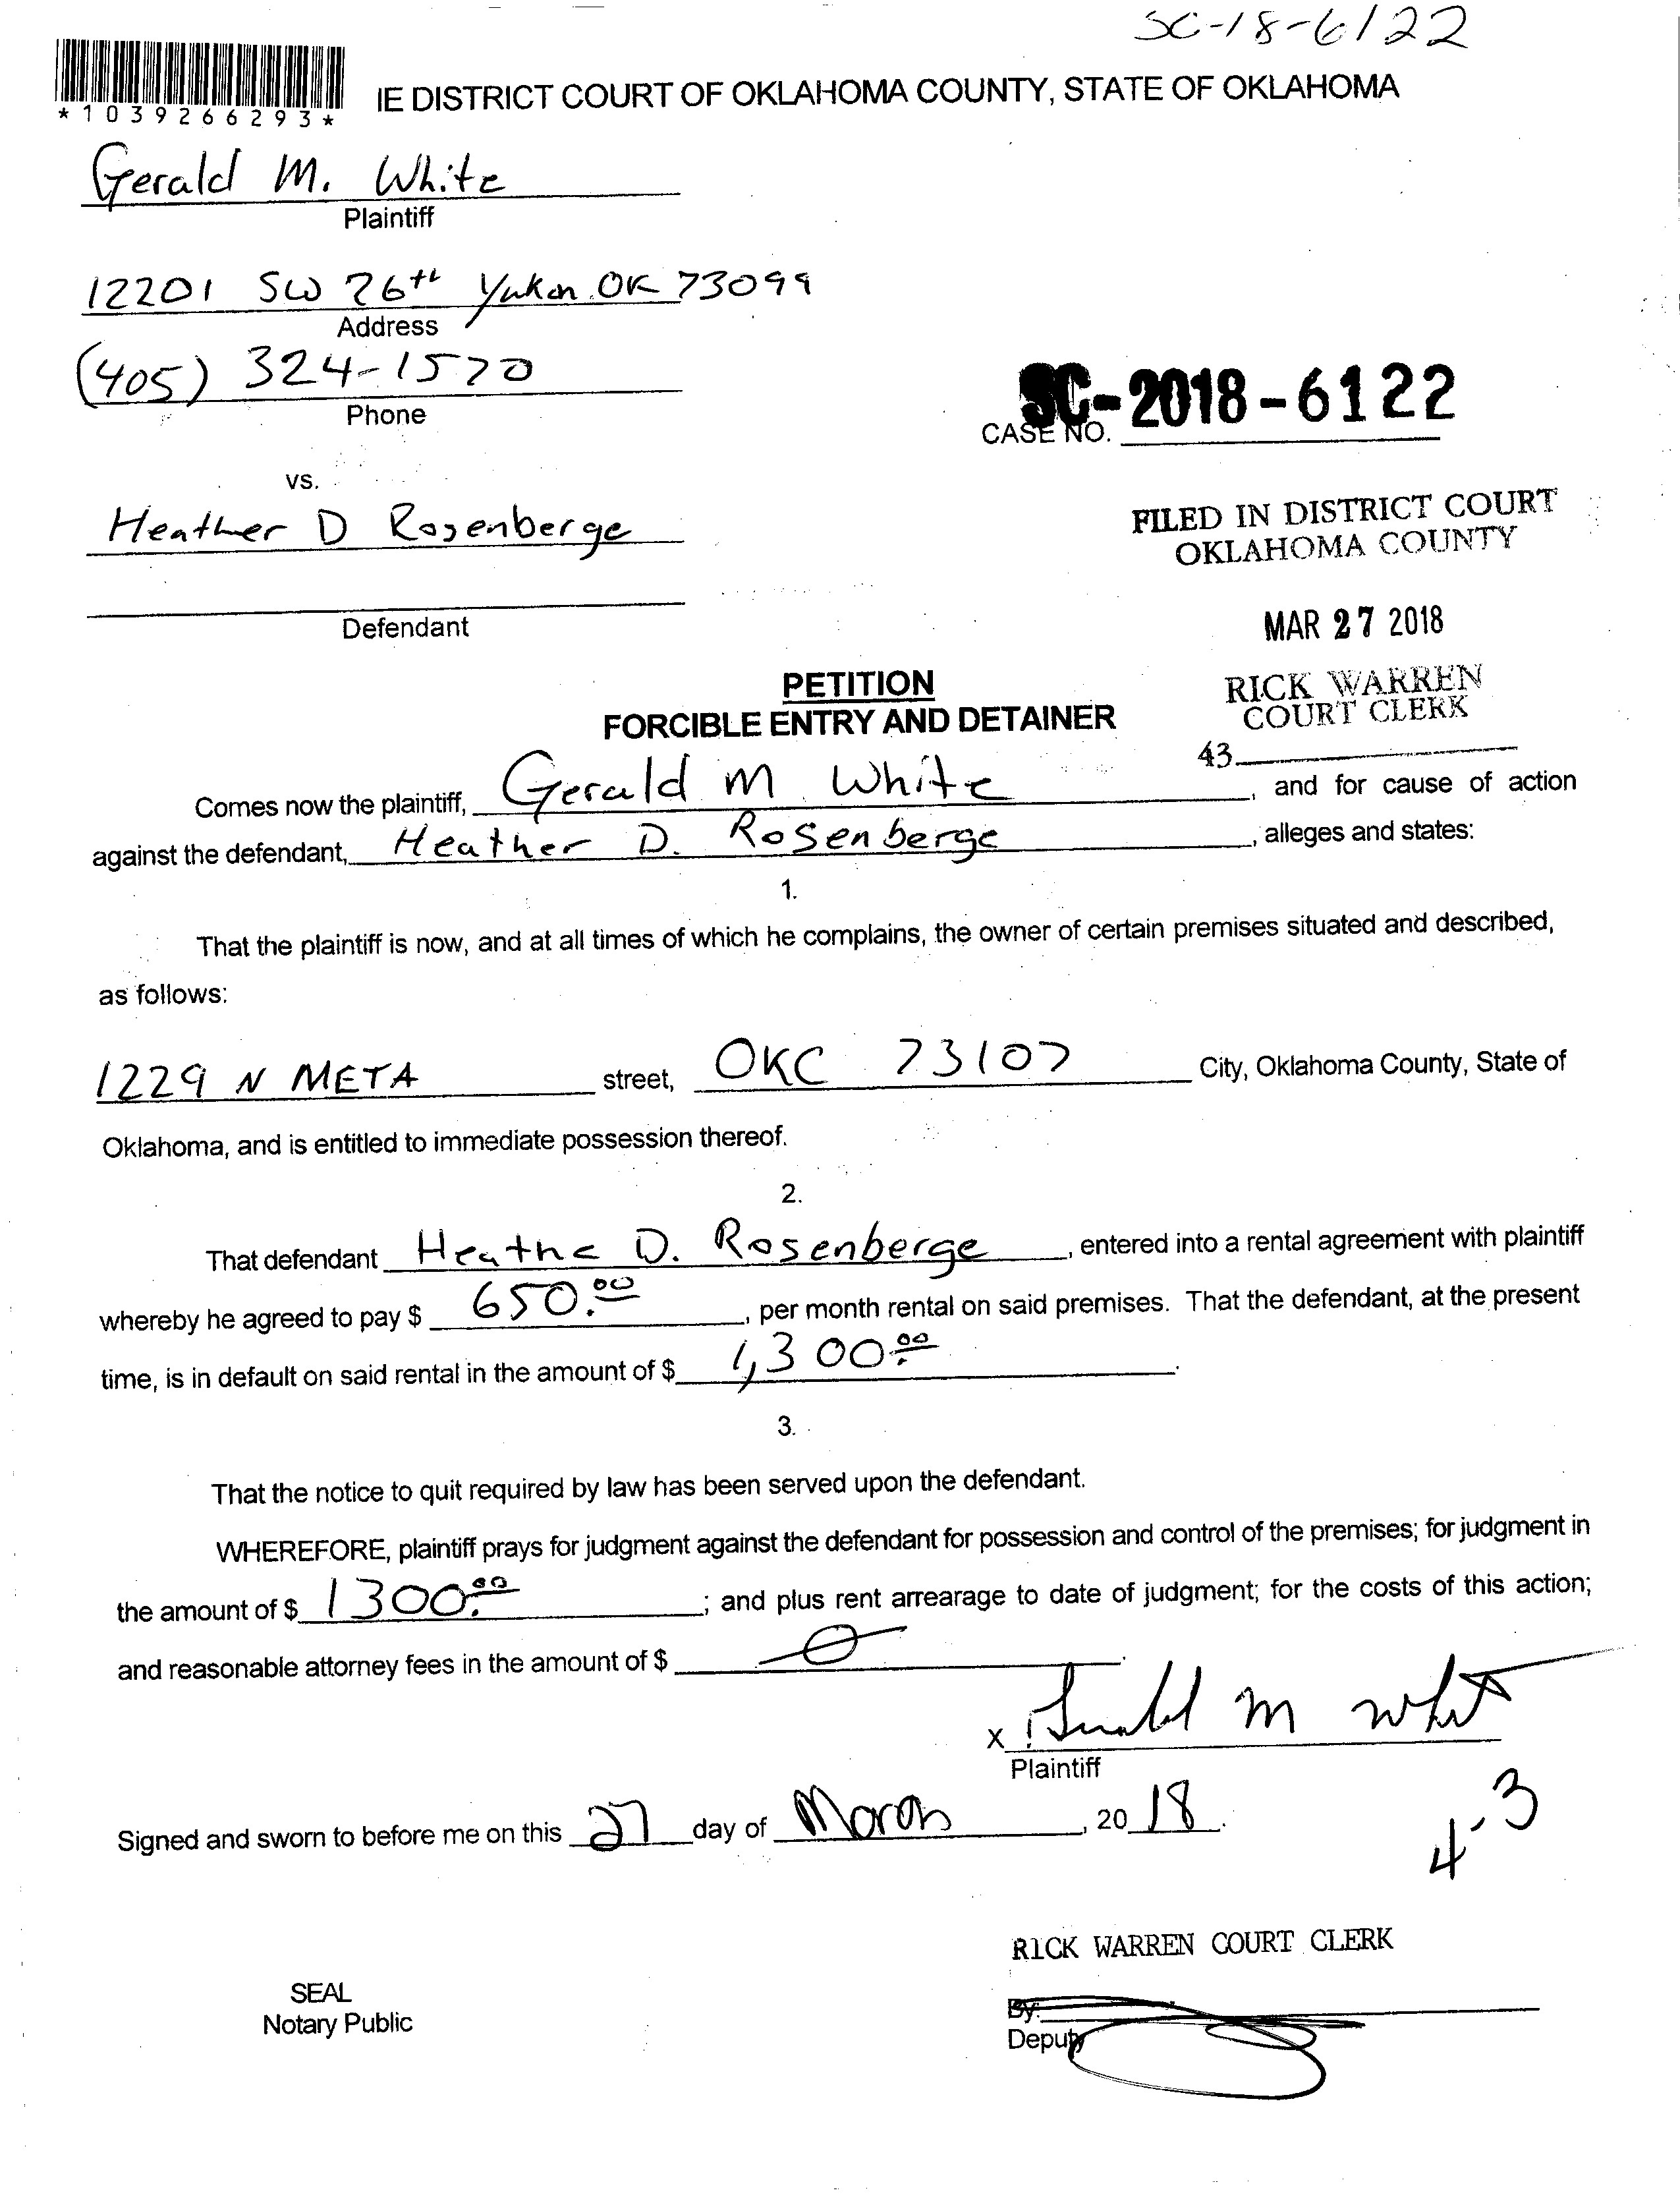 SC-18-6122
*1039266293*
IE DISTRICT COURT OF OKLAHOMA COUNTY, STATE OF OKLAHOMA
Gerald M. White
Plaintiff
12201 SW 26th Yukon OK 73099
Address
(405) 324-1570
Phone
SC-2018-6122
CASE NO.
vs.
Heather D Rosenberge
FILED IN DISTRICT COURT
OKLAHOMA COUNTY
Defendant
MAR 27 2018
PETITION
RICK WARREN
COURT CLERK
FORCIBLE ENTRY AND DETAINER
43
Comes now the plaintiff, Gerald M White, and for cause of action
against the defendant, Heather D. Rosenberge, alleges and states:
1.
That the plaintiff is now, and at all times of which he complains, the owner of certain premises situated and described,
as follows:
1229 N META street, OKC 73107 City, Oklahoma County, State of
Oklahoma, and is entitled to immediate possession thereof.
2.
That defendant Heathe D. Rosenberge, entered into a rental agreement with plaintiff
whereby he agreed to pay $ 650.00, per month rental on said premises. That the defendant, at the present
time, is in default on said rental in the amount of $ 1,300.00.
3.
That the notice to quit required by law has been served upon the defendant.
WHEREFORE, plaintiff prays for judgment against the defendant for possession and control of the premises; for judgment in
the amount of $ 1300.00; and plus rent arrearage to date of judgment; for the costs of this action;
and reasonable attorney fees in the amount of $ 0.
x Gerald M White
Plaintiff
Signed and sworn to before me on this 27 day of March, 2018.
4-3
RICK WARREN COURT CLERK
SEAL
Notary Public
By:
Deputy